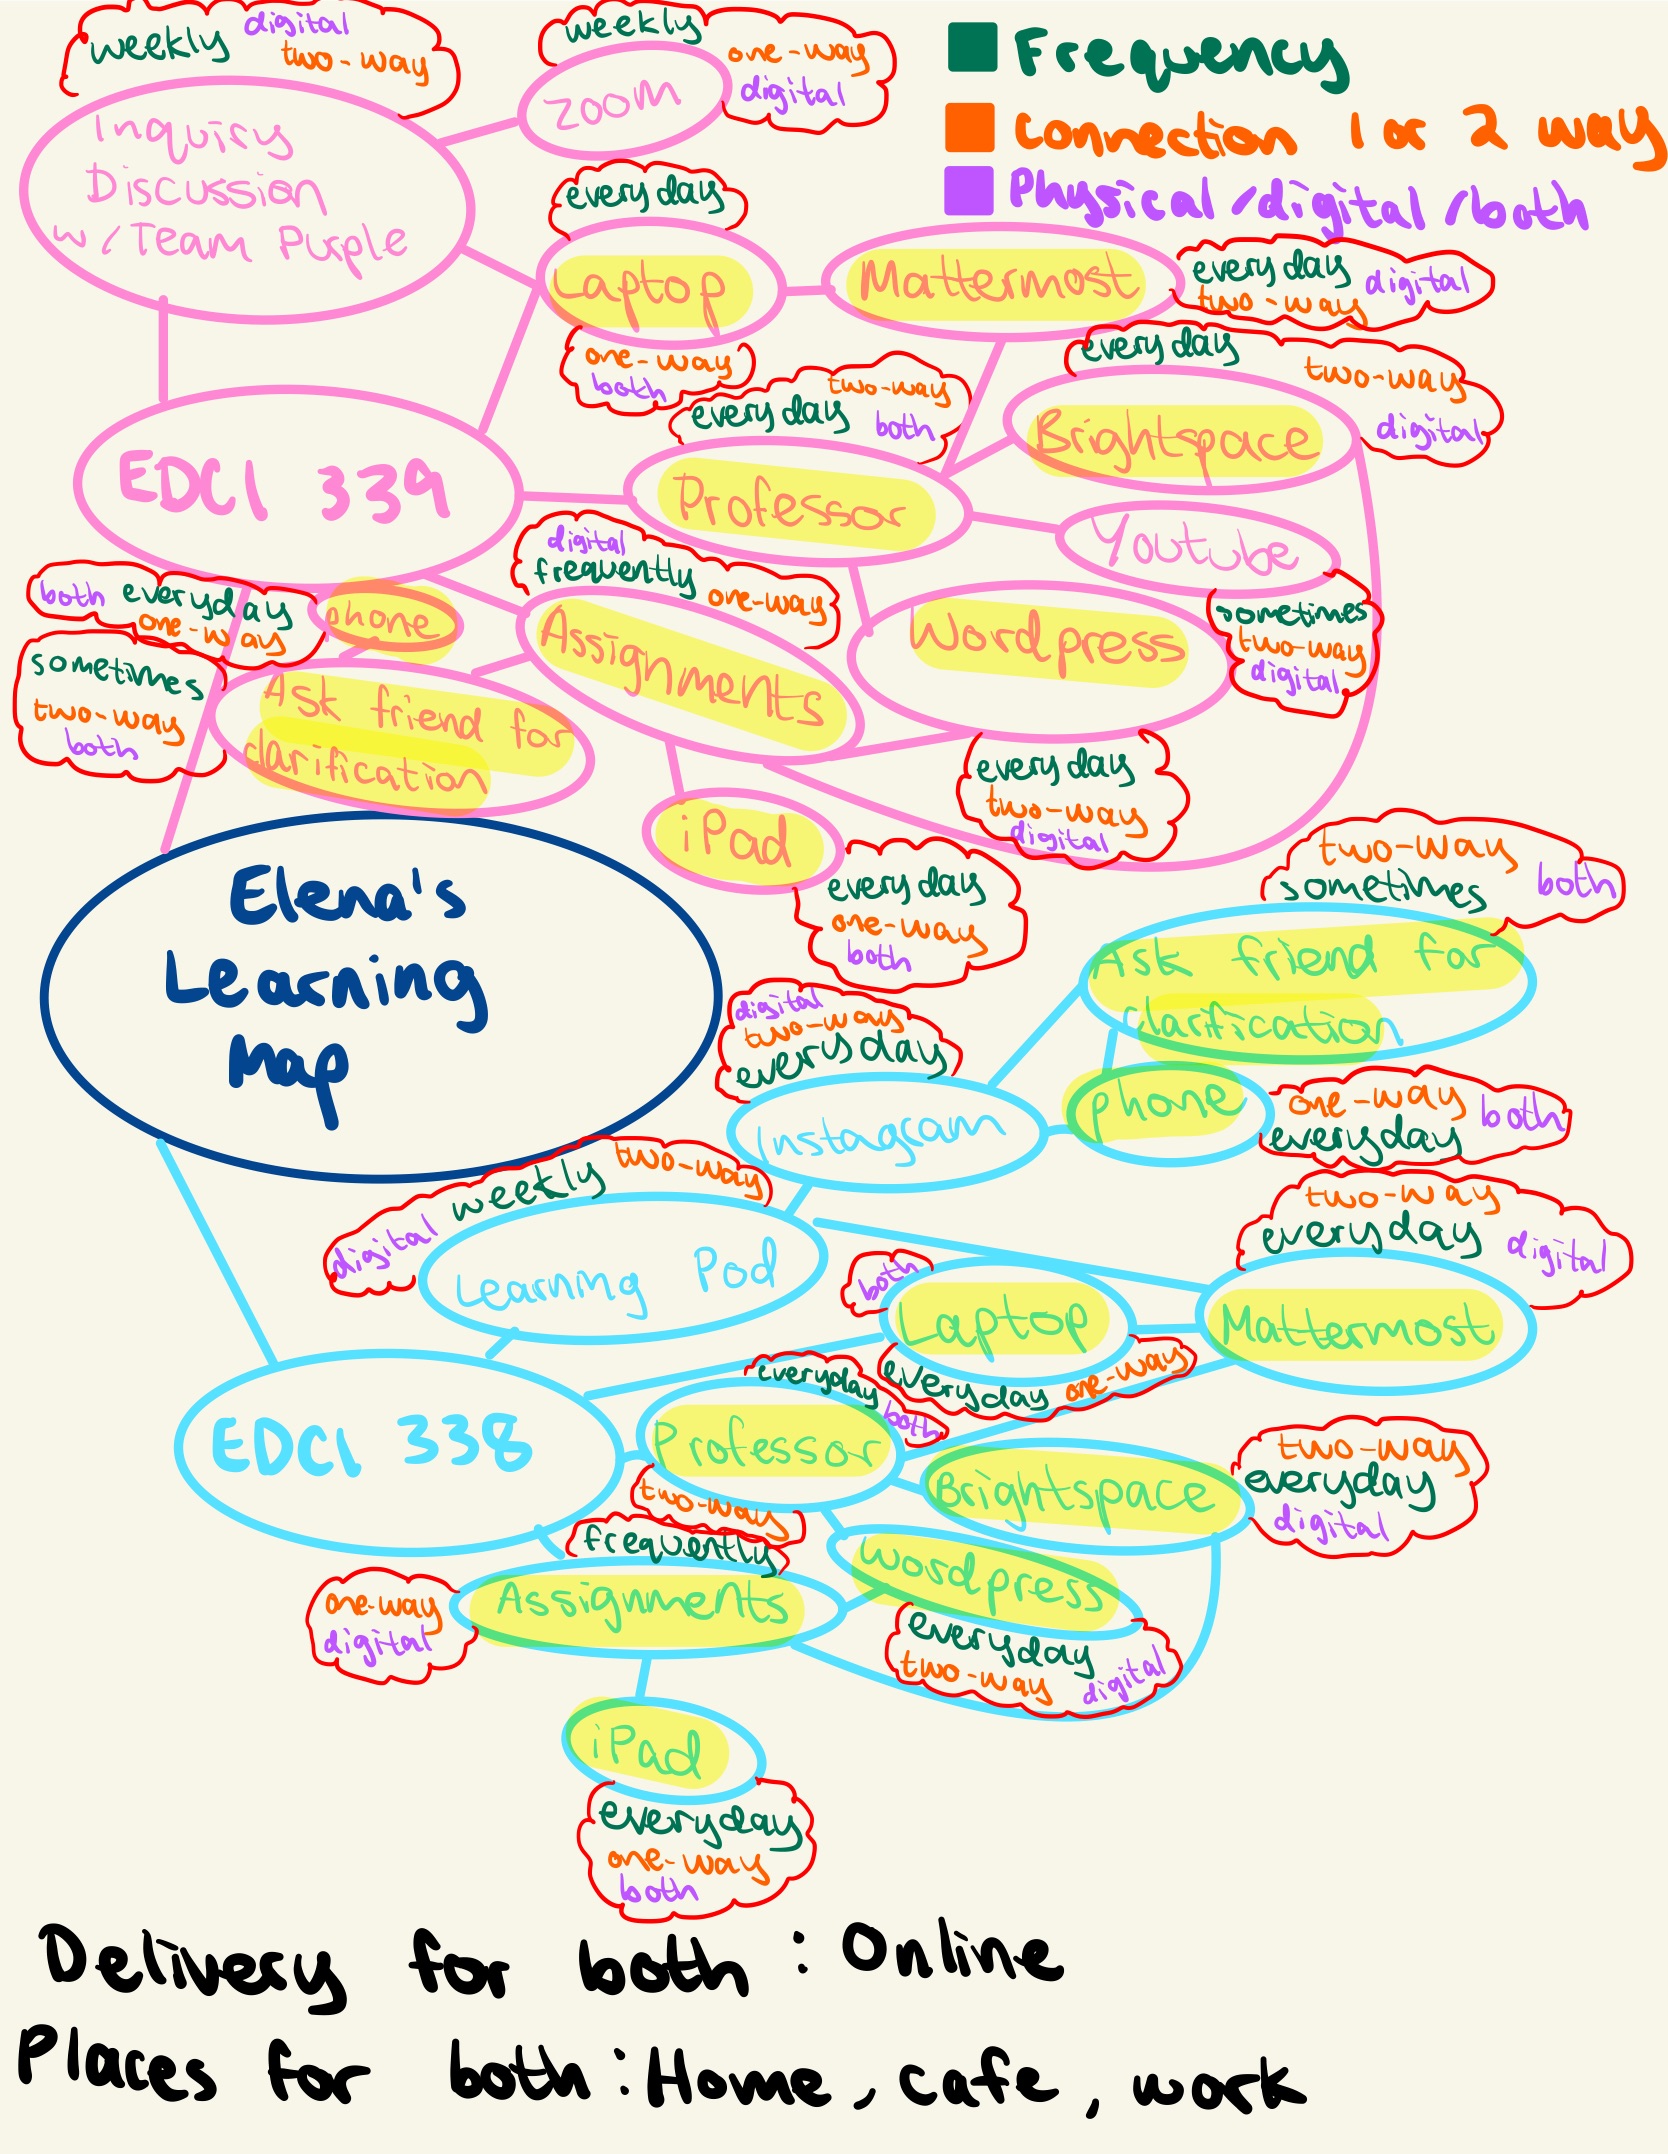 weekly digital
two-way
weekly
one-way
digital
Frequency
Connection 1 or 2 way
Physical/digital/both
zoom
Inquiry
Discussion
w/Team Purple
every day
Laptop
one-way
both
Mattermost
every day digital
two-way
every day
two-way
digital
Brightspace
two-way
every day both
EDCI 339
Professor
Youtube
sometimes
two-way
digital
digital
frequently
one-way
Assignments
Wordpress
every day
two-way
digital
both everyday
one-way
phone
sometimes
two-way
both
Ask friend for
clarification
iPad
every day
one-way
both
Elena's
Learning
Map
two-way
sometimes both
Ask friend for
clarification
digital
two-way
everyday
Instagram
phone
one-way both
everyday
digital weekly two-way
Learning Pod
two-way
everyday digital
both
Laptop
everyday one-way
Mattermost
EDCI 338
everyday
both
Professor
two-way
Brightspace
two-way
everyday
digital
frequently
Assignments
one-way
digital
wordpress
everyday
two-way digital
iPad
everyday
one-way
both
Delivery for both : Online
Places for both : Home, cafe, work